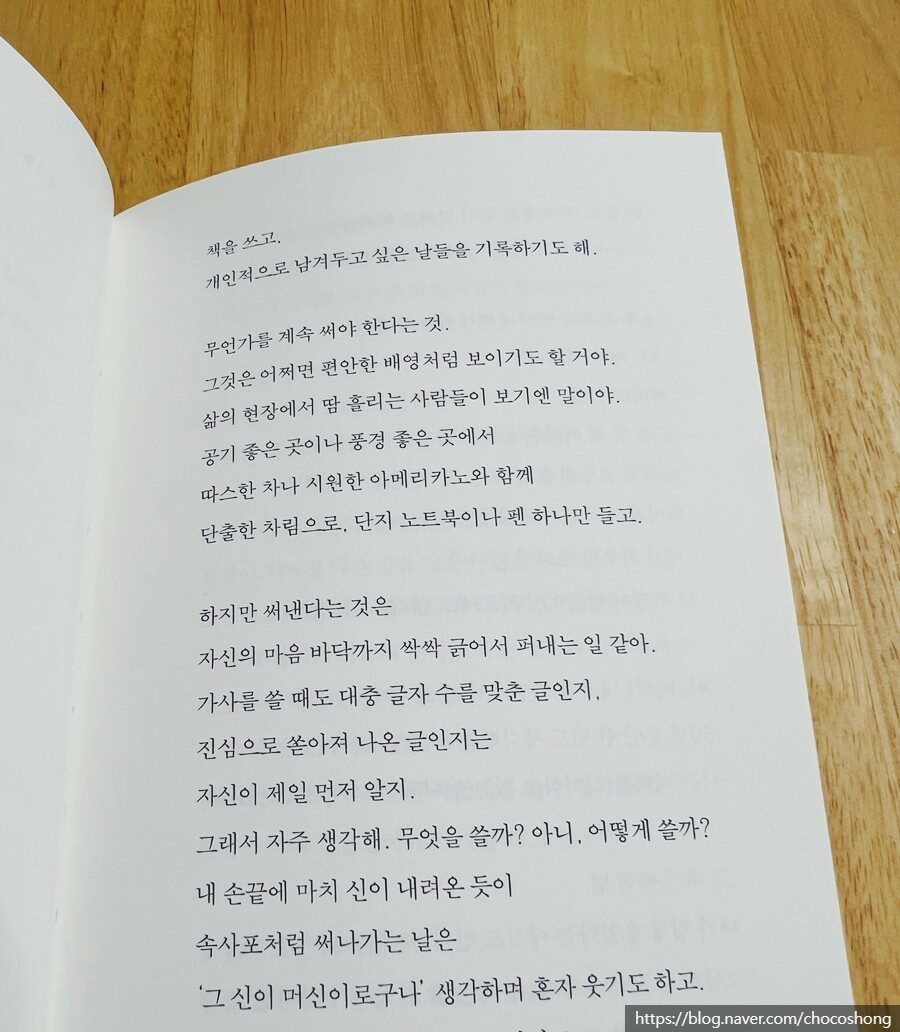 책을 쓰고,
개인적으로 남겨두고 싶은 날들을 기록하기도 해.
무언가를 계속 써야 한다는 것.
그것은 어쩌면 편안한 배영처럼 보이기도 할 거야.
삶의 현장에서 땀 흘리는 사람들이 보기엔 말이야.
공기 좋은 곳이나 풍경 좋은 곳에서
따스한 차나 시원한 아메리카노와 함께
단출한 차림으로, 단지 노트북이나 펜 하나만 들고.
하지만 써낸다는 것은
자신의 마음 바닥까지 싹싹 긁어서 퍼내는 일 같아.
가사를 쓸 때도 대충 글자 수를 맞춘 글인지,
진심으로 쏟아져 나온 글인지는
자신이 제일 먼저 알지.
그래서 자주 생각해. 무엇을 쓸까? 아니, 어떻게 쓸까?
내 손끝에 마치 신이 내려온 듯이
속사포처럼 써나가는 날은
‘그 신이 머신이로구나’ 생각하며 혼자 웃기도 하고.
https://blog.naver.com/chocoshong